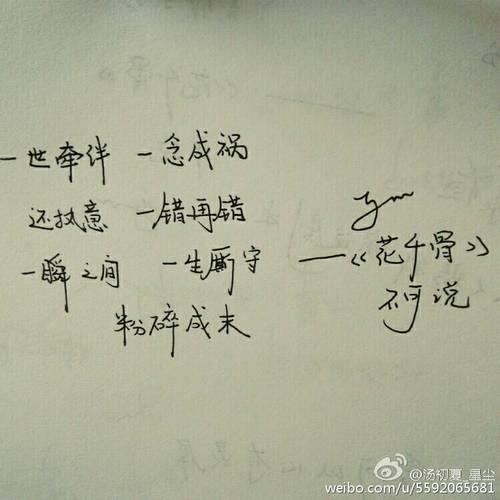 一世牵绊 一念成祸
还执意 一错再错
一瞬之间 一生厮守
粉碎成末
ym
——《花千骨》
不可说
@汤初夏_星尘
weibo.com/u/5592065681